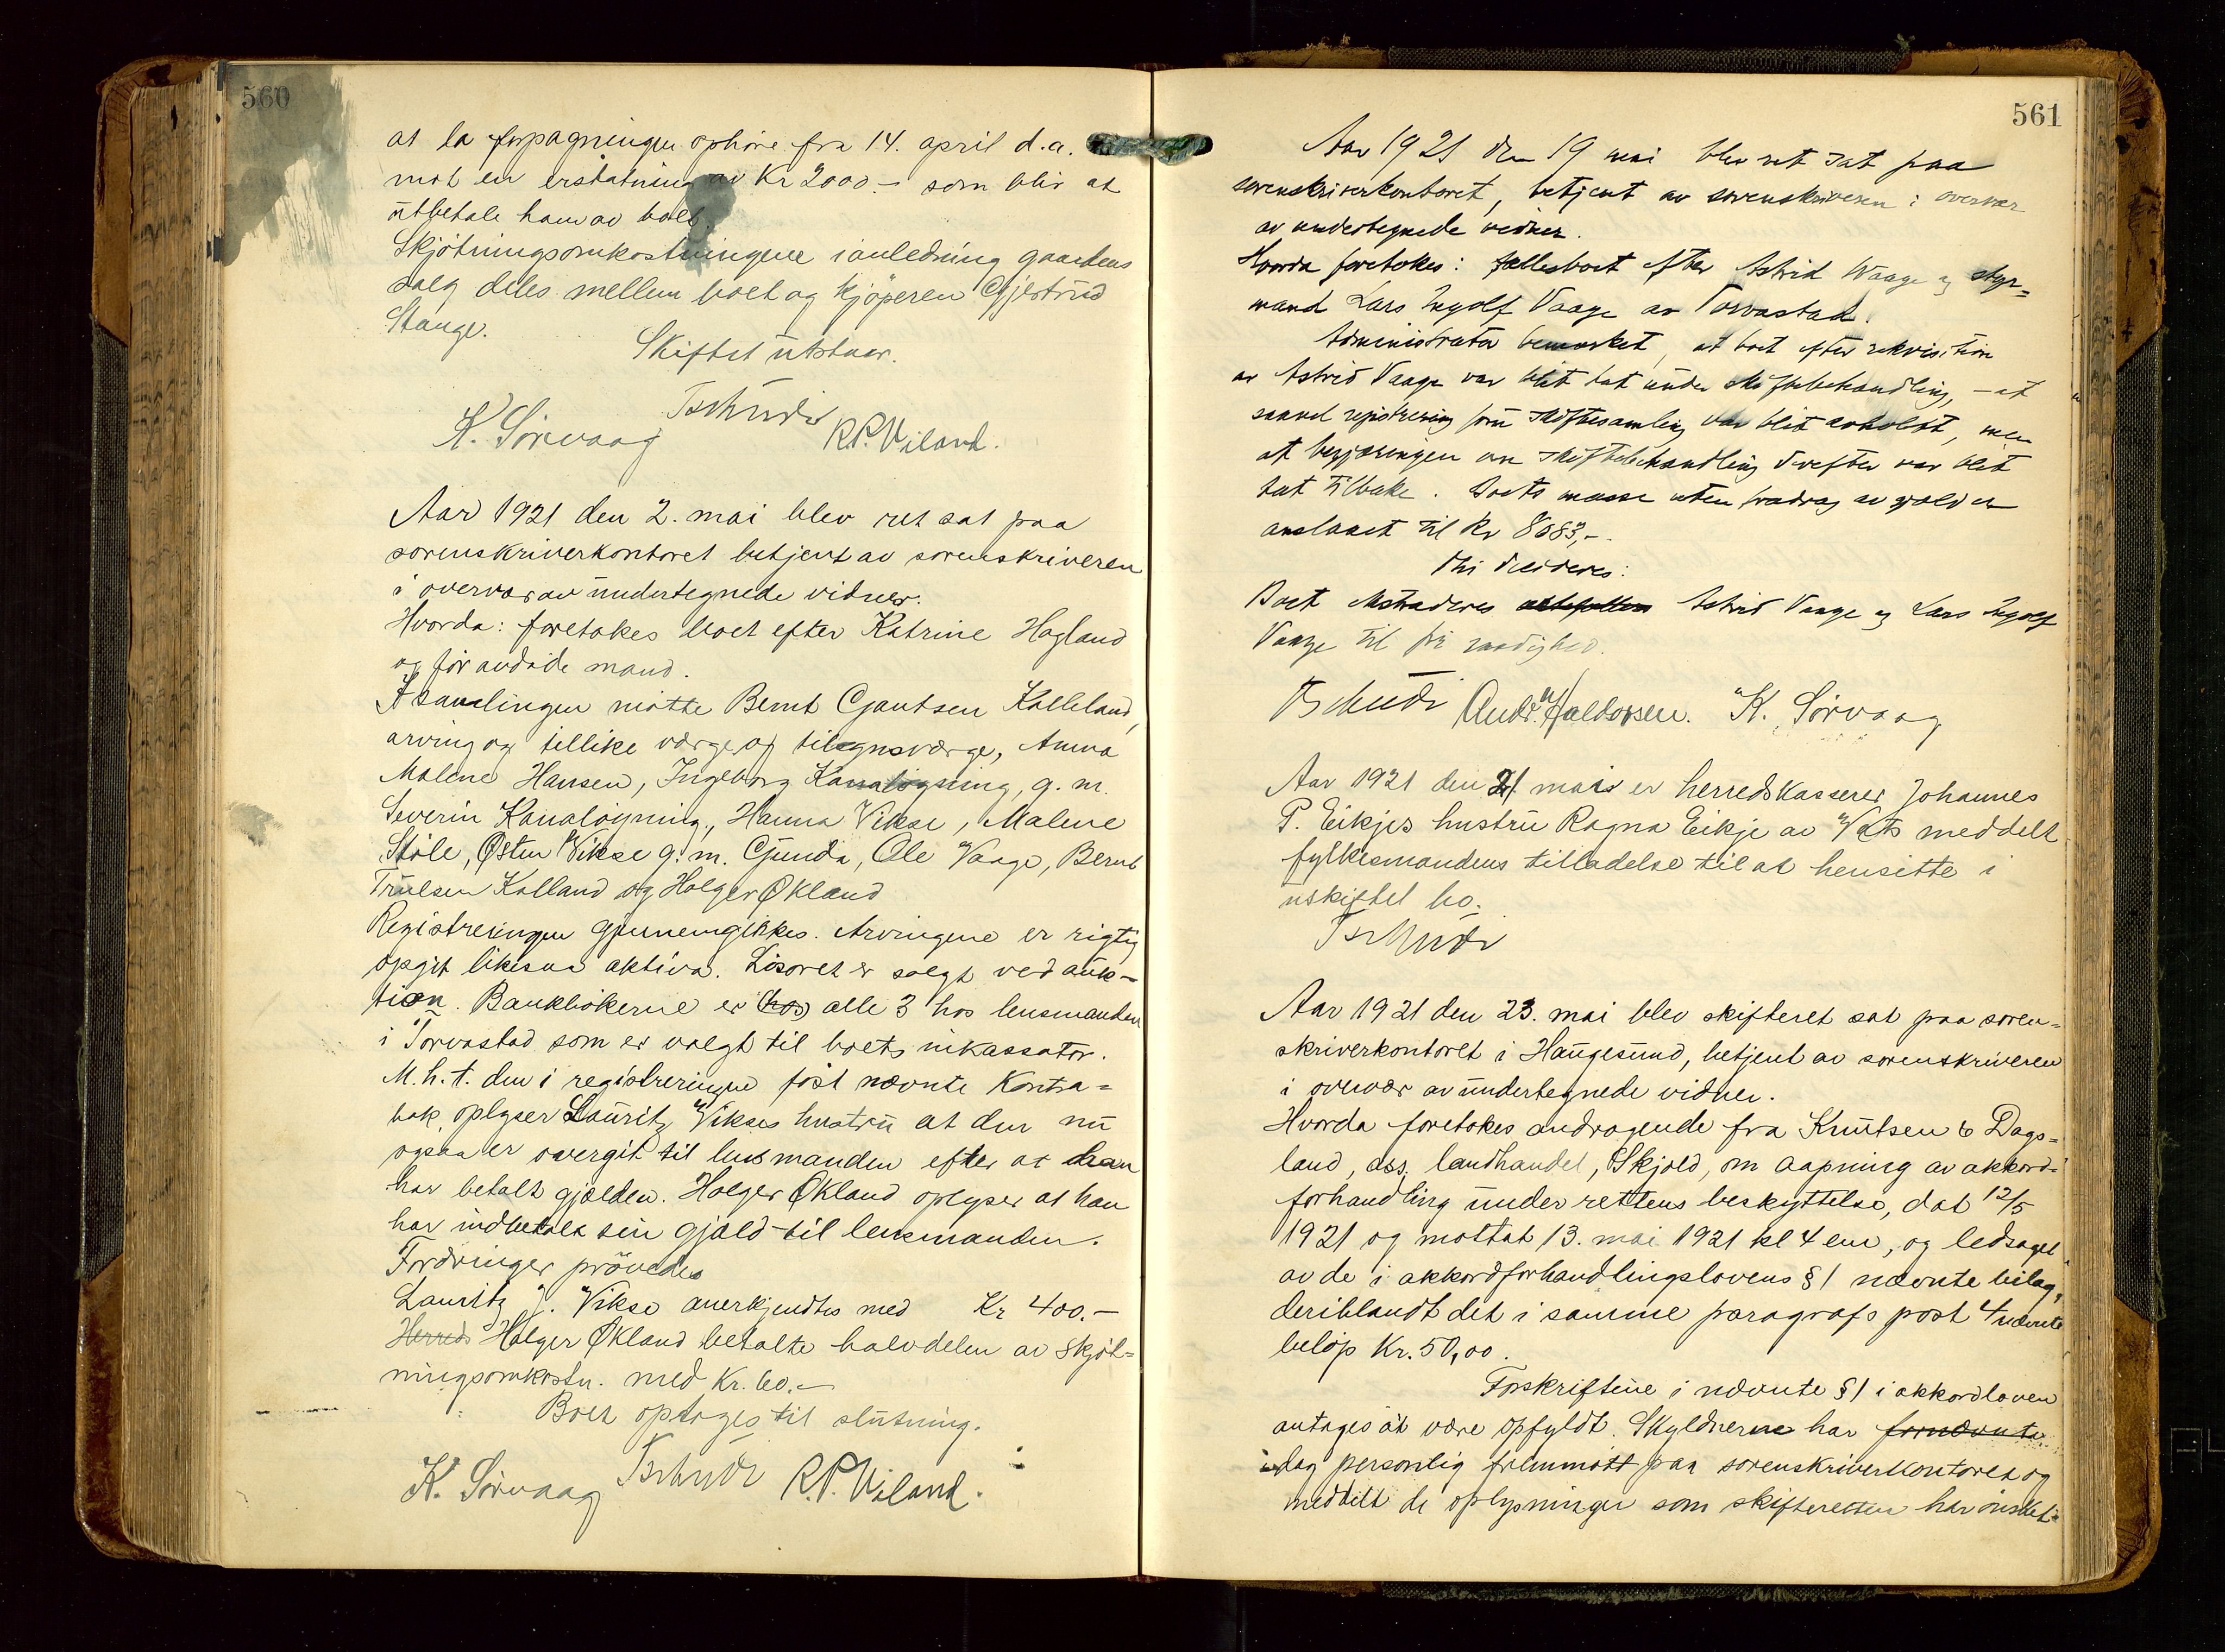 560
at la forpagtningen ophöre fra 14. april d.a.
mot en erstatning av Kr 2000.- som blir at
utbetale ham av boet.
Skjötningsomkostningene i anledning gaardens
salg deles mellem boet og kjöperen Gjertrud
Stange.
Skiftet utstaar.
Tschudi
K. Sörvaag R.P. Viland.
Aar 1921 den 2. mai blev ret sat paa
sorenskriverkontoret betjent av sorenskriveren
i overvær av undertegnede vidner.
Hvorda: foretokes boet efter Katrine Hagland
og før avdøde mand.
I samlingen mötte Bernt Gjautsen Kalleland,
arving og tillike værge og tilsynsværge, Anna
Malene Hansen, Ingeborg Kanalögning, g. m.
Severin Kanaløgning, Hanna Vikse, Malene
Støle, Østen Vikse g. m. Gunda, Ole Vaage, Bernt
Trulsen Kolland og Holger Økland
Registreringen gjennemgikkes. Arvingene er rigtig
opgit likesaa aktiva. Lösöret er solgt ved auk-
tion. Bankbökerne er hos alle 3 hos lensmanden
i Torvastad som er valgt til boets inkassator.
M.h.t. den i registreringen föst nævnte Kontra-
bok, oplyser Lauritz Vikses hustru at den nu
ogsaa er overgit til lensmanden efter at han
har betalt gjælden. Holger Økland oplyser at han
har indbetalt sin gjæld til lensmanden.
Fordringer prövedes
Lauritz J. Vikse anerkjendtes med Kr 400.-
Herreds Holger Økland betalte halvdelen av skjöt-
ningsomkostn. med Kr. 60.-
Boet optoges til slutning.
K. Sörvaag Tschudi R.P. Viland.
561
Aar 1921 den 19 mai blev ret sat paa
sorenskriverkontoret, betjent av sorenskriveren i overvær
av undertegnede vidner.
Hvorda foretokes: fællesboet efter Astrid Waage og styr-
mand Lars Ingolf Vaage av Torvastad.
Administrator bemærket, at boet efter rekvisition
av Astrid Vaage var blit tat under skiftebehandling, - at
saavel registrering som skiftesamling var blit avholdt, men
at begjæringen om skiftebehandling derefter var blit
tat tilbake. Boets masse uten fradrag av gjæld er
anslaaet til Kr 8683,-.
Thi decideres:
Boet extraderes Astrid Vaage og Lars Ingolf
Vaage til fri raadighed.
Tschudi Andr. Haldorsen. K. Sörvaag
Aar 1921 den 21 mai er herredskasserer Johannes
P. Eikjes hustru Ragna Eikje av Vats meddelt
fylkesmandens tilladelse til at hensitte i
uskiftet bo.
Tschudi
Aar 1921 den 23. mai blev skifteret sat paa soren-
skriverkontoret i Haugesund, betjent av sorenskriveren
i overvær av undertegnede vidner.
Hvorda foretokes andragende fra Knutsen & Dags-
land, ass. landhandel, Skjold, om aapning av akkord-
forhandling under rettens beskyttelse, dat 12/5
1921 og mottat 13. mai 1921 kl 4 em, og ledsaget
av de i akkordforhandlingslovens § 1 nævnte bilag,
deriblandt det i samme paragrafs post 4 nævnte
belöp Kr. 50,00.
Forskriftene i nævnte § 1 i akkordloven
antages at være opfyldt. Skyldnerne har fornævnte
idag personlig fremmött paa sorenskriverkontoret og
meddelt de oplysninger som skifteretten har önsket.